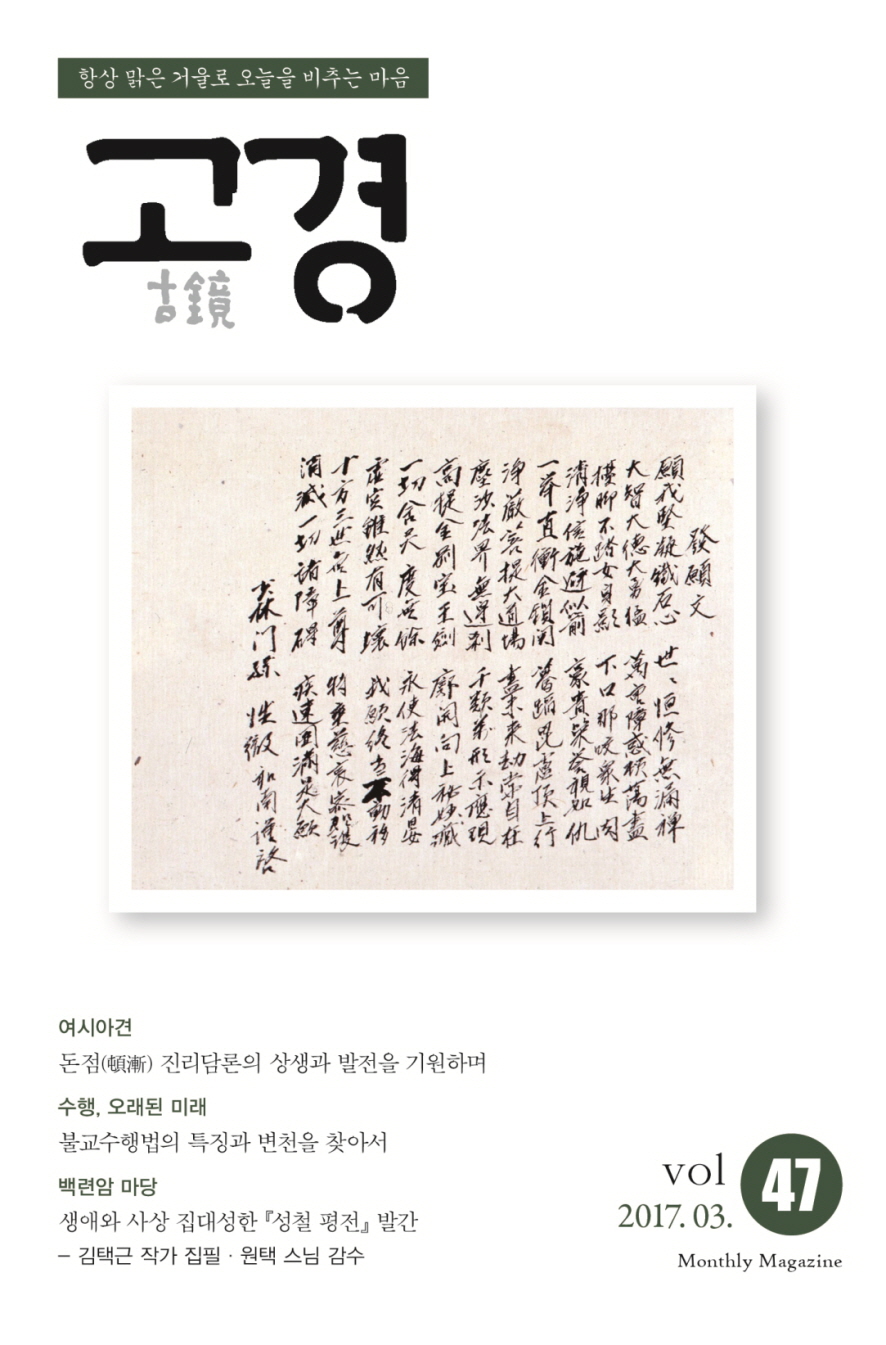 항상 맑은 거울로 오늘을 비추는 마음
고경
古鏡
發願文
願我堅凝鐵石心 世〻恒修無漏禪
大智大德大勇猛 萬重障惑頓蕩盡
橫脚不踏女身影 下口那咬衆生肉
淸淨信施避似箭 豪貴榮譽視如仇
一擧直衝金鎖関 驀蹈毘盧頂上行
淨嚴菩提大道場 盡未來劫常自在
塵沙法界無邊刹 千類萬形示應現
高提金剛宝王劍 廓開向上秘妙藏
一切含灵度無餘 永使法海得淸晏
虛空雖然有可壞 我願終古不動移
十方三世無上尊 特垂慈哀密加護
消滅一切諸障碍 疾速圓滿是大願
少林門孫 性徹 和南謹啓
여시아견
돈점(頓漸) 진리담론의 상생과 발전을 기원하며
수행, 오래된 미래
불교수행법의 특징과 변천을 찾아서
백련암 마당
생애와 사상 집대성한 『성철 평전』 발간
– 김택근 작가 집필 · 원택 스님 감수
vol 47
2017. 03.
Monthly Magazine